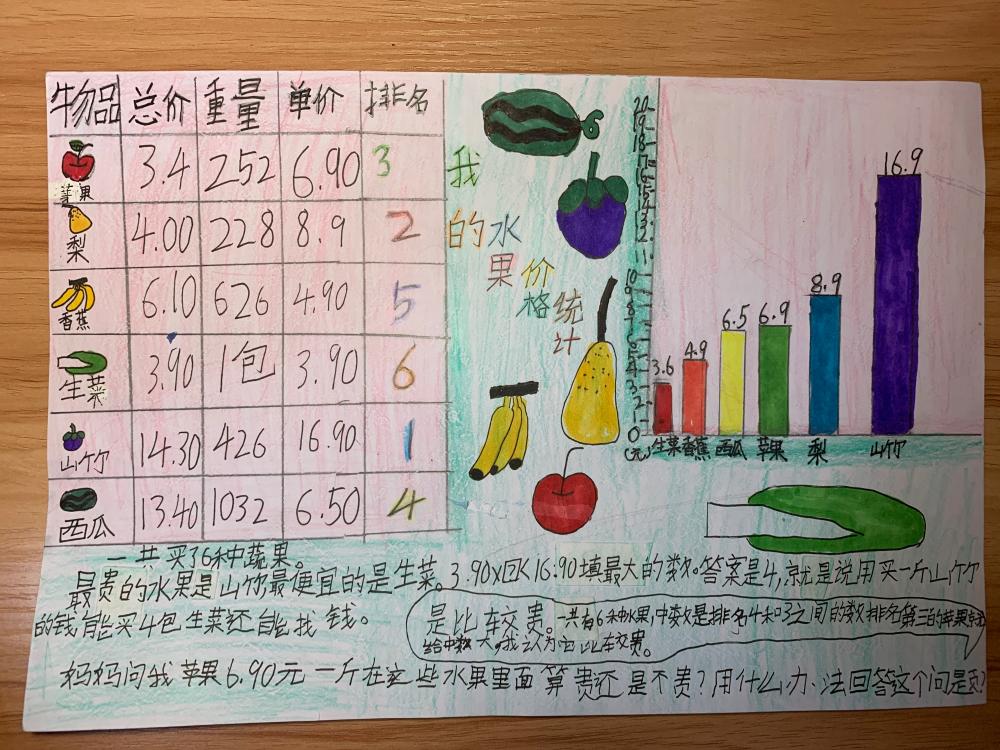 物品 总价 重量 单价 排名
苹果 3.4 252 6.90 3
梨 4.00 228 8.9 2
香蕉 6.10 626 4.90 5
生菜 3.90 1包 3.90 6
山竹 14.30 426 16.90 1
西瓜 13.40 1032 6.50 4
我
的水
果价
格统
计
20
19
18
17
16
15
13
12
11
10
9
8
7
6
5
4
3
2
1
0
(元)
3.6 4.9 6.5 6.9 8.9 16.9
生菜 香蕉 西瓜 苹果 梨 山竹
一共买了6种蔬果。
最贵的水果是山竹最便宜的是生菜。3.90×口<16.90填最大的数。答案是4,就是说用买一斤山竹
的钱能买4包生菜还能找钱。
是比较贵。一共有6种水果,中数是排名4和3之间的数排名第三的苹果
给中数大。我认为它比较贵。
妈妈问我苹果6.90元一斤在这些水果里面算贵还是不贵?用什么办法回答这个问题?